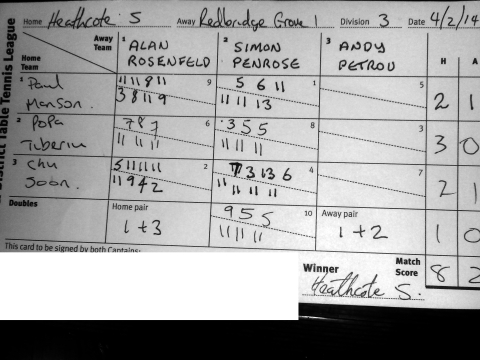 Home Heathcote S Away Redbridge Grove 1 Division 3 Date 4/2/14
District Table Tennis League
Away Team
Home Team
1 ALAN ROSENFELD
2 SIMON PENROSE
3 ANDY PETROU
H A
1 Paul Manson.
11 11 8 11 9
3 8 11 9
5 6 11 1
11 11 13
5
2 1
2 Popa Tiberiu
7 8 7 6
11 11 11
3 5 5 8
11 11 11
3
3 0
3 Chu Soon.
5 11 11 11 2
11 9 4 2
7 3 13 6 4
11 11 11 11
7
2 1
Doubles
Home pair
1 + 3
9 5 5 10
11 11 11
Away pair
1 + 2
1 0
This card to be signed by both Captains:
Winner Heathcote S.
Match Score 8 2